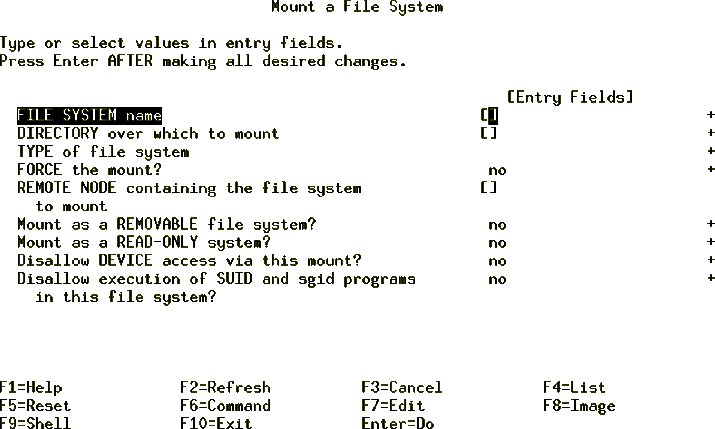 Mount a File System
Type or select values in entry fields.
Press Enter AFTER making all desired changes.
[Entry Fields]
FILE SYSTEM name [] +
DIRECTORY over which to mount [] +
TYPE of file system +
FORCE the mount? no +
REMOTE NODE containing the file system []
to mount
Mount as a REMOVABLE file system? no +
Mount as a READ-ONLY system? no +
Disallow DEVICE access via this mount? no +
Disallow execution of SUID and sgid programs no +
in this file system?
F1=Help F2=Refresh F3=Cancel F4=List
F5=Reset F6=Command F7=Edit F8=Image
F9=Shell F10=Exit Enter=Do